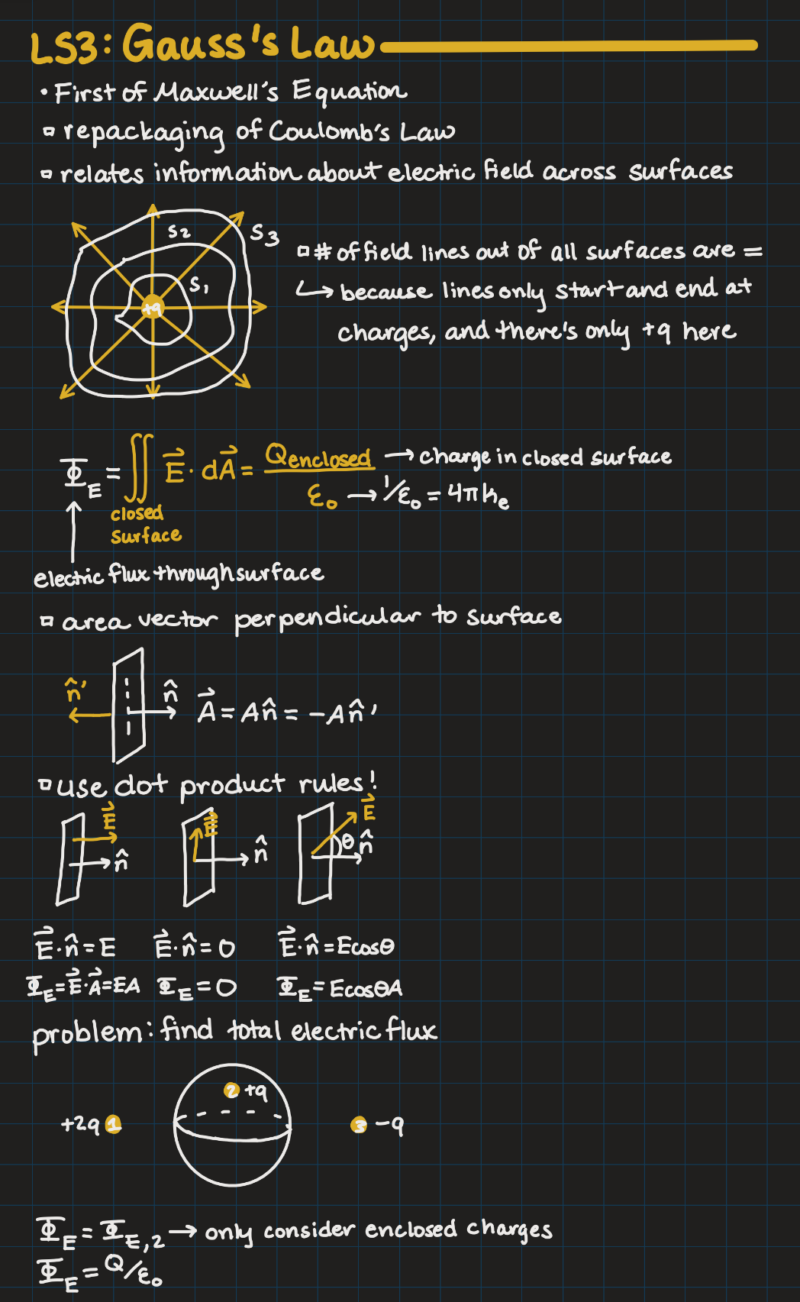 LS3: Gauss's Law
• First of Maxwell's Equation
▫ repackaging of Coulomb's Law
▫ relates information about electric field across surfaces
S2
S3
S1
+q
▫ # of field lines out of all surfaces are =
↳ because lines only start and end at
charges, and there's only +q here
Φ_E = ∬ E⃗ · dA⃗ = Qenclosed / ε₀ → charge in closed surface
→ 1/ε₀ = 4πke
closed
surface
electric flux through surface
▫ area vector perpendicular to surface
n̂' n̂ A⃗ = An̂ = -An̂'
▫ use dot product rules!
E⃗ n̂ E⃗ n̂ E⃗ θ n̂
E⃗·n̂ = E E⃗·n̂ = 0 E⃗·n̂ = Ecosθ
Φ_E = E⃗·A⃗ = EA Φ_E = 0 Φ_E = EcosθA
problem: find total electric flux
2 +q
+2q 1 3 -q
Φ_E = Φ_E,2 → only consider enclosed charges
Φ_E = Q/ε₀